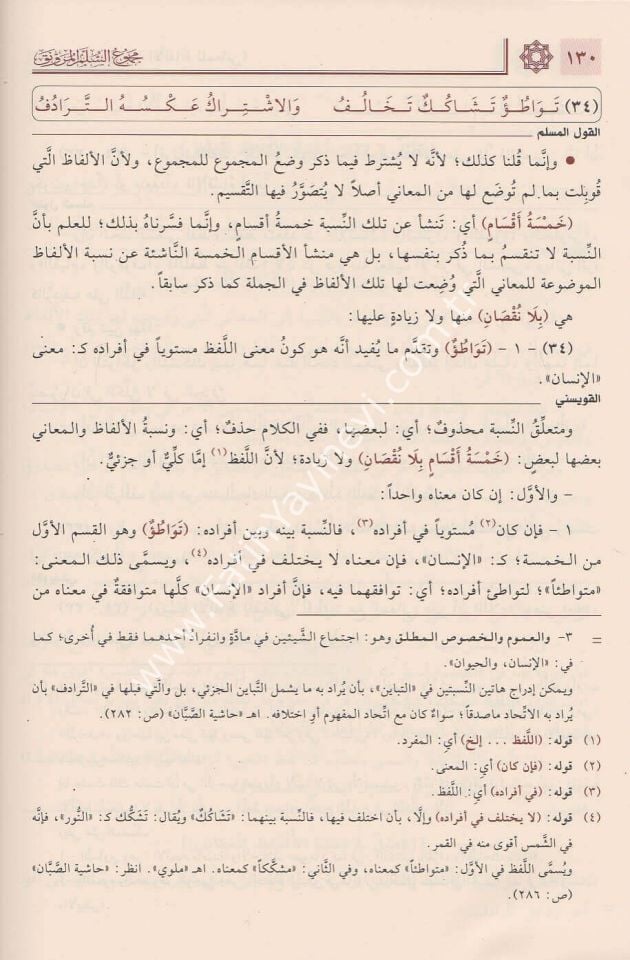 ١٣٠
مجموع السلم المرونق
(٣٤) تَوَاطُؤٌ تَشَاكُكٌ تَخَالُفُ وَالاشْتِرَاكُ عَكْسُهُ التَّرَادُفُ
القول المسلم
• وإنَّما قُلنا كذلك؛ لأنَّه لا يُشترط فيما ذكر وضعُ المجموع للمجموع، ولأنَّ الألفاظ الَّتي
قُوبِلت بما لم تُوضَع لها من المعاني أصلاً لا يُتصَوَّرُ فيها التَّقسيم.
(خَمْسَةُ أَقْسَامٍ) أي: تَنشأ عن تلك النِّسبة خمسةُ أقسامٍ، وإنَّما فسَّرناهُ بذلك؛ للعلم بأنَّ
النِّسبة لا تنقسمُ بما ذُكر بنفسها، بل هي منشأ الأقسام الخمسة النَّاشئة عن نسبة الألفاظ
الموضوعة للمعاني الَّتي وُضِعت لها تلك الألفاظ في الجملة كما ذكر سابقاً.
هي (بِلَا نُقْصَانِ) منها ولا زيادةٍ عليها:
(٣٤) - ١ - (تَوَاطُؤٌ) وتقدَّم ما يُفيد أنَّه هو كونُ معنى اللَّفظ مستوياً في أفراده كـ: معنى
«الإنسان».
القويسني
ومتعلِّقُ النِّسبة محذوفٌ؛ أي: لبعضها، ففي الكلام حذفٌ؛ أي: ونسبةُ الألفاظ والمعاني
بعضها لبعضٍ: (خَمْسَةُ أَقْسَامٍ بِلَا نُقْصَانِ) ولا زيادة؛ لأنَّ اللَّفظ(١) إمَّا كليٌّ أو جزئيٌّ.
- والأوَّل: إن كان معناه واحداً:
١ - فإن كان(٢) مُستوياً في أفراده(٣)، فالنِّسبة بينه وبين أفراده: (تَوَاطُؤٌ) وهو القسم الأوَّل
من الخمسة؛ كـ: «الإنسان»، فإن معناه لا يختلف في أفراده(٤)، ويسمَّى ذلك المعنى:
«متواطئاً»؛ لتواطئ أفراده؛ أي: توافقهما فيه، فإنَّ أفراد «الإنسان» كلَّها متوافقةٌ في معناه من
= ٣- والعموم والخصوص المطلق وهو: اجتماع الشَّيئين في مادَّةٍ وانفرادُ أحدهما فقط في أُخرى؛ كما
في: «الإنسان، والحيوان».
ويمكن إدراج هاتين النِّسبتين في «التباين»، بأن يُراد به ما يشمل التَّباين الجزئي، بل والَّتي قبلها في «التَّرادف» بأن
يُراد به الاتِّحاد ماصدقاً؛ سواءٌ كان مع اتِّحاد المفهوم أو اختلافه. اهـ «حاشية الصَّبَّان» (ص: ٢٨٢).
(١) قوله: (اللَّفظ ... إلخ) أي: المفرد.
(٢) قوله: (فإن كان) أي: المعنى.
(٣) قوله: (في أفراده) أي: اللَّفظ.
(٤) قوله: (لا يختلف في أفراده) وإلَّا، بأن اختلف فيها، فالنِّسبة بينهما: «تَشَاكُكٌ» ويُقال: تَشَكُّك كـ: «النُّور»، فإنَّه
في الشَّمس أقوى منه في القمر.
ويُسمَّى اللَّفظ في الأوَّل: «متواطئاً» كمعناه، وفي الثَّاني: «مشكِّكاً» كمعناه. اهـ «ملوي». انظر: «حاشية الصَّبَّان»
(ص: ٢٨٦).